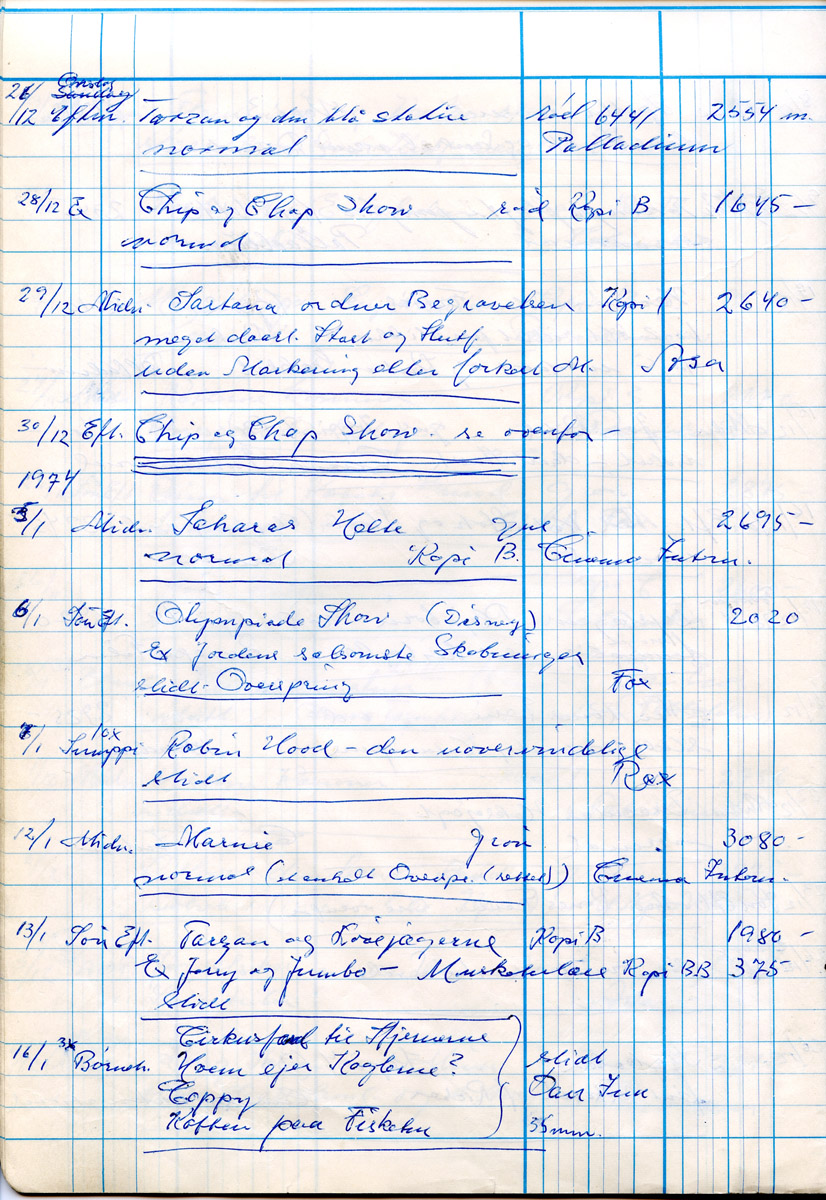 26/ Onsdag
/12 Eftm. Tarzan og den blå statue rød 6441 2554 m.
normal Palladium
28/12 E Chip og Chap Show rød Kopi B 1645 —
normal
29/12 Midn. Sartana ordner Begravelsen Kopi 1 2640 —
meget daarl. Start og Slutf.
uden Markering eller forkert M. Asa
30/12 Eft. Chip og Chap Show. se ovenfor —
1974
5/1 Midn. Saharas Helte gul 2695 —
normal Kopi B. Cinema Intern.
6/1 Søn Eft. Olympiade Show (Disney) 2020
Ex Jordens sælsomste Skabninger
slidt. Overspring Fox
7/1 Robin Hood — den uovervindelige
slidt Rex
12/1 Midn. Marnie grøn 3080 -
normal (enkelt Overspr. ) Cinema Intern.
13/1 Søn Eft. Tarzan og Kopi B 1980 —
Ex Jony og Jumbo — Kopi BB 375
slidt
Cirkusfar til Stjernerne
16/1 3x Børneh. Hvem ejer Kaglerne? slidt
Coppy Dan Inn
Katten paa Fisketur 35 mm.